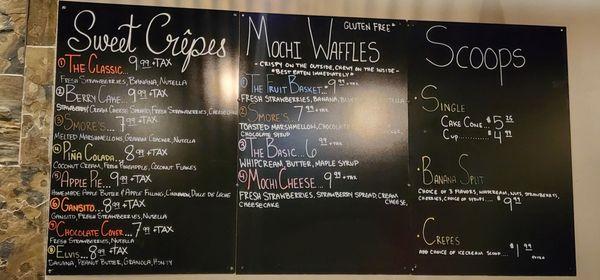 Sweet Crêpes
① The Classic... 9.99 + TAX
Fresh Strawberries, Banana, Nutella
② Berry Cake... 9.99 + TAX
Strawberry Cream Cheese Spread, Fresh Strawberries, Cheesecake
③ Smore's... 7.99 + TAX
Melted Marshmellows, Graham Cracker, Nutella
④ Piña Colada... 8.99 + TAX
Coconut Cream, Fresh Pineapple, Coconut Flakes
⑤ Apple Pie... 9.99 + TAX
Homemade Apple Butter & Apple Filling, Cinnamon, Dulce de Leche
⑥ Gansito... 8.99 + TAX
Gansito, Fresh Strawberries, Nutella
⑦ Chocolate Cover... 7.99 + TAX
Fresh Strawberries, Nutella
⑧ Elvis... 8.99 + TAX
Banana, Peanut Butter, Granola, Honey
Mochi Waffles
Gluten Free*
- Crispy on the outside, chewy on the inside -
*Best eaten immediately*
① The Fruit Basket... 9.99 + TAX
Fresh Strawberries, Banana,
② Smore's... 7.99 + TAX
Toasted Marshmellow, Chocolate
Chocolate Syrup
③ The Basic... 6.99 + TAX
Whipcream, Butter, Maple Syrup
④ Mochi Cheese... 9.99 + TAX
Fresh Strawberries, Strawberry Spread, Cream Cheese,
Cheesecake
Scoops
Single
Cake Cone... $5
Cup... $4.99
Banana Split
Choice of 3 flavors, whipcream, nuts, strawberries,
cherries, choice of syrups... $9.99
Crepes
Add choice of icecream scoop... $1.99